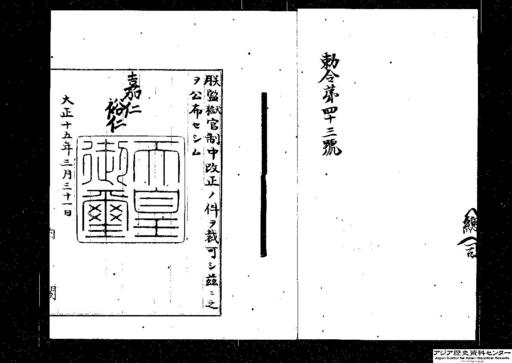 勅令第四十三號
朕監獄官制中改正ノ件ヲ裁可シ茲ニ之
ヲ公布セシム
嘉仁
裕仁
天皇
御璽
大正十五年三月三十一日
内閣
アジア歴史資料センター
Japan Center for Asian Historical Records